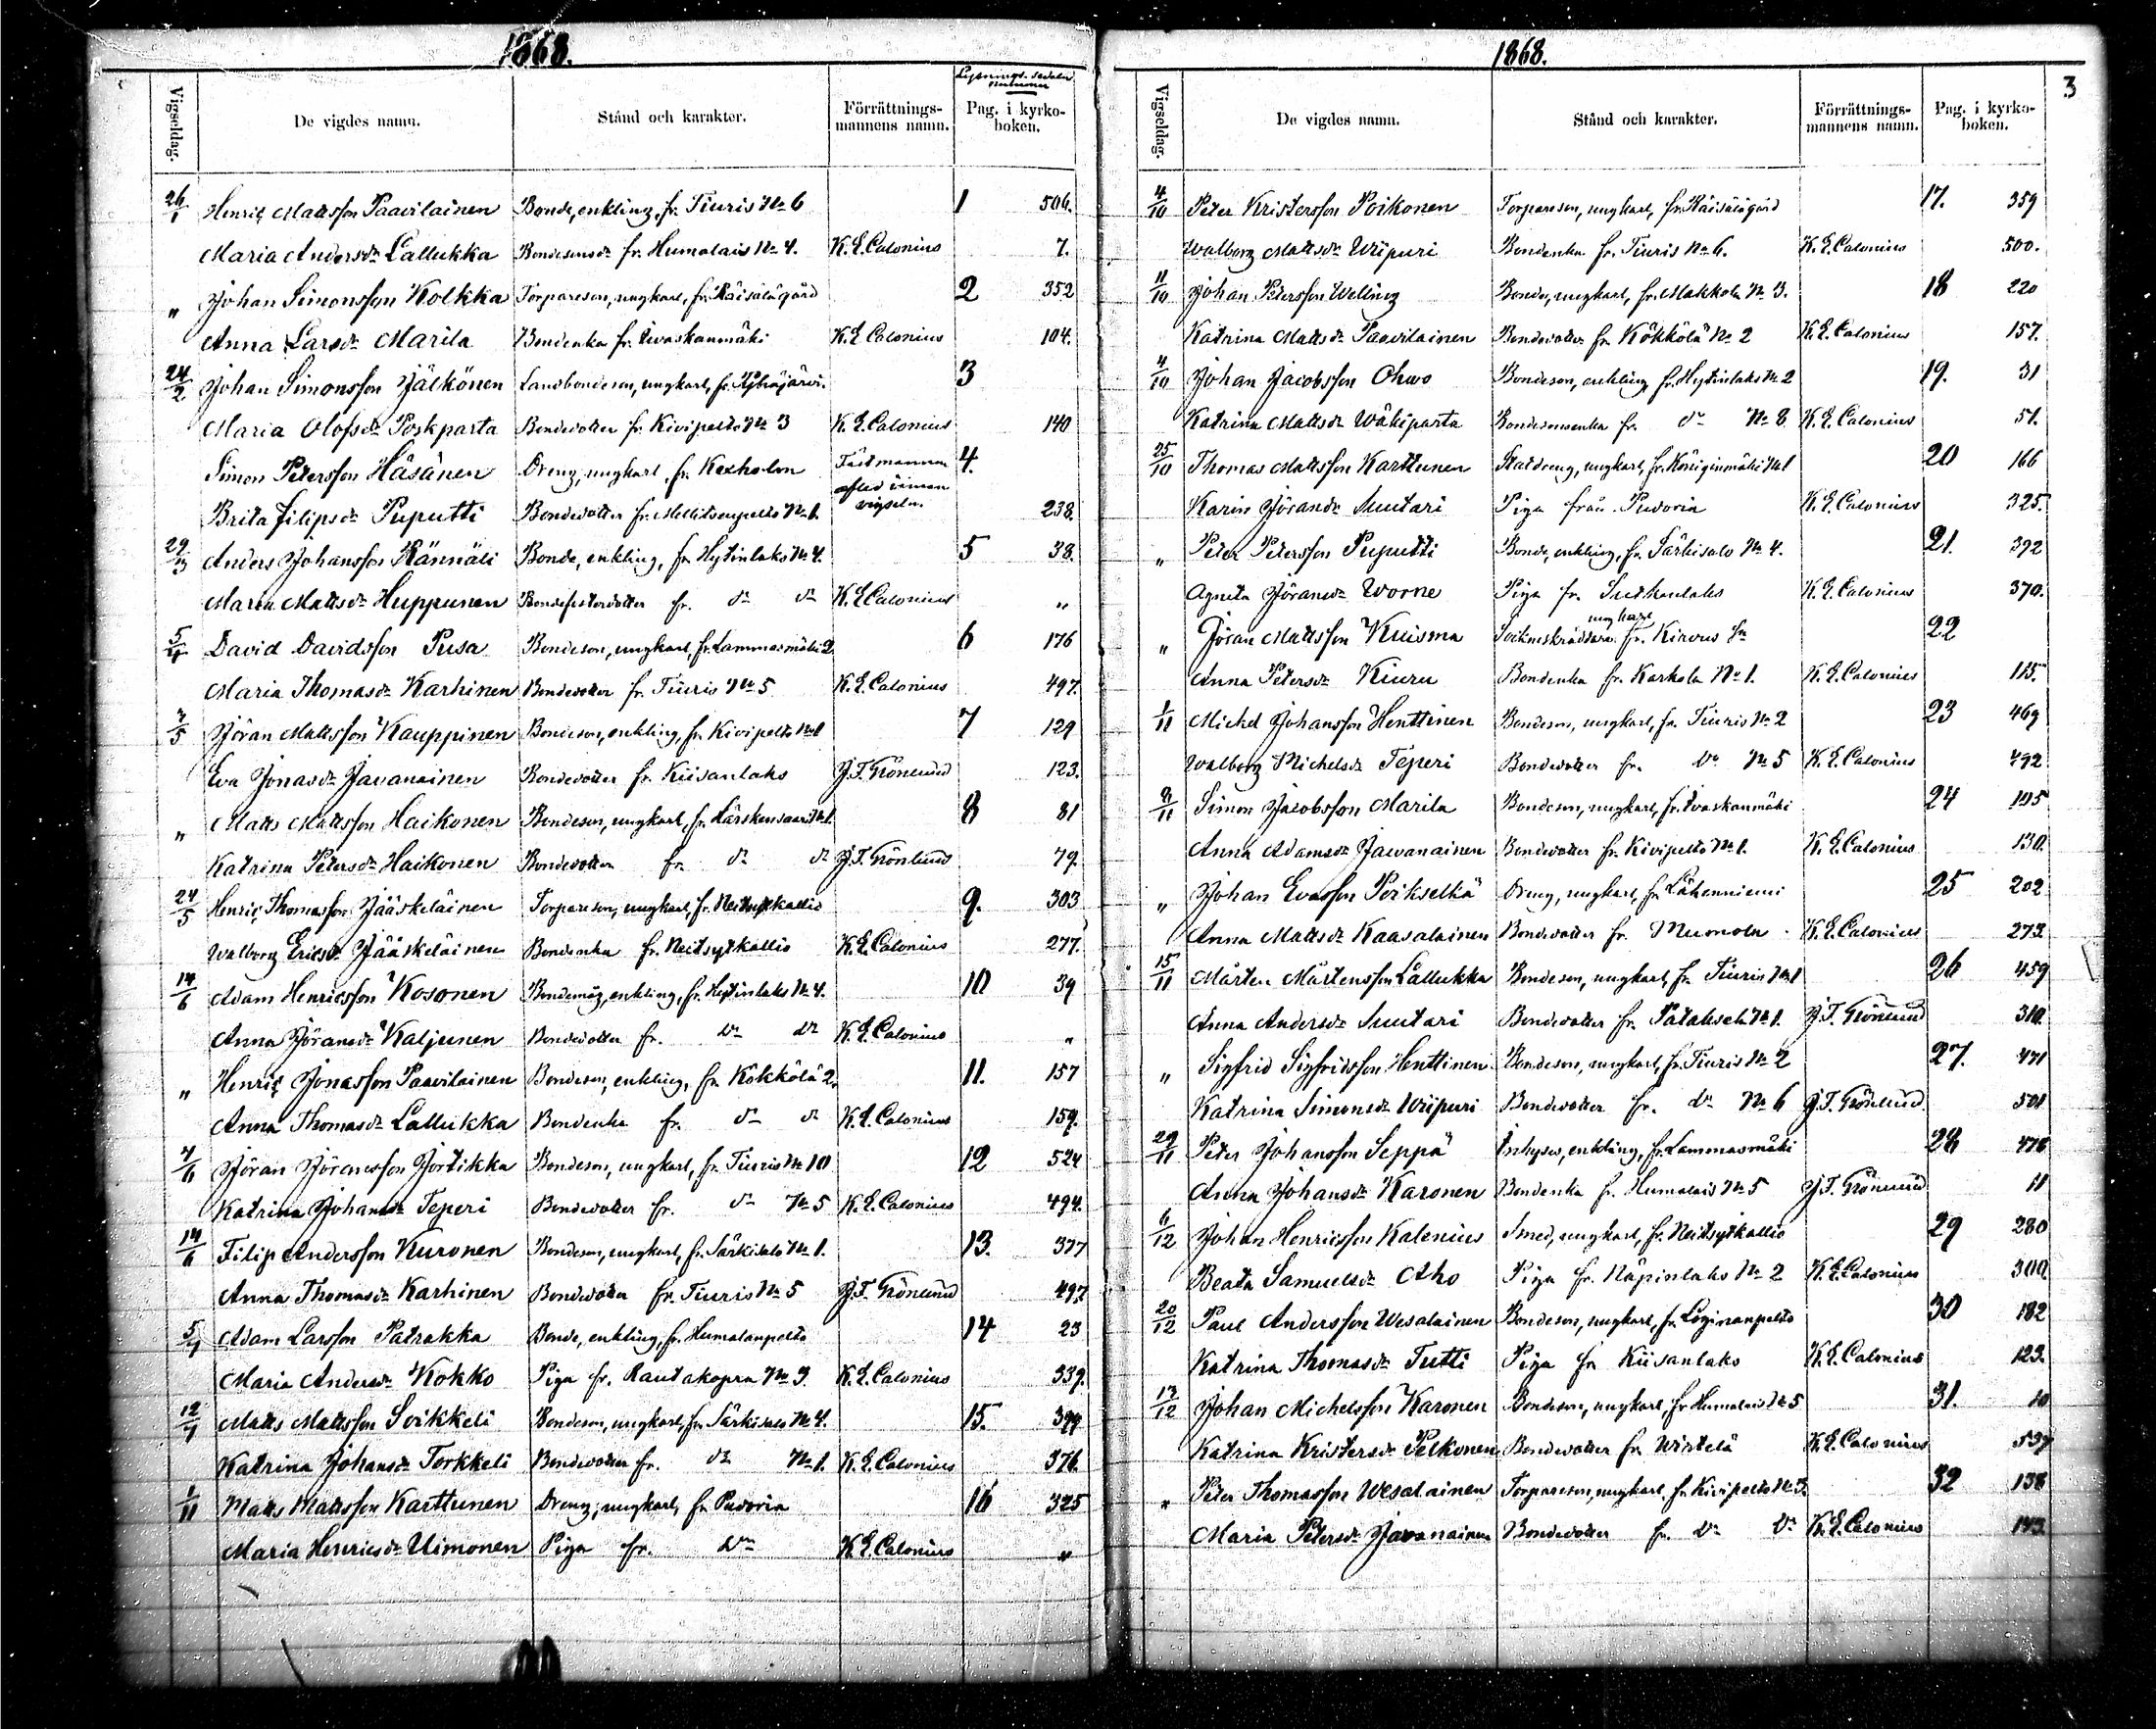 1868.
Vigseldag.
De vigdes namn.
Stånd och karakter.
Förrättnings-mannens namn.
Lysnings-sedelns nummer
Pag. i kyrko-boken.
26/1 Henric Mattsson Paavilainen Bonde, enkling, fr. Tiuris No 6 1 506.
Maria Andersdr Lallukka Bondesonsdr fr. Humalais No 4. K. E. Calonius 7.
" Johan Simonsson Kolkka Torpareson, ungkarl, fr. Räisälägård 2 352
Anna Larsdr Marila Bondenka fr. Ivaskanmäki K. E. Calonius 104.
24/2 Johan Simonsson Jälkönen Landbondeson, ungkarl, fr. 3
Maria Olofsdr Poskparta Bondedotter fr. Kivipelto No 3 K. E. Calonius 140
Simon Petersson Häsänen Dreng, ungkarl, fr. Kexholm Fästmannen afled innan vigseln. 4.
Brita Filipsdr Puputti Bondedotter fr. Mellitsenpelto No 1. 238.
29/3 Anders Johansson Rännäli Bonde, enkling, fr. Hytinlaks No 4. 5 38.
Maria Mattsdr Huppunen Bondefosterdotter fr. do do K. E. Calonius "
5/4 David Davidsson Pusa Bondeson, ungkarl, fr. Lammasmäki 2. 6 176
Maria Thomasdr Karhinen Bondedotter fr. Tiuris No 5 K. E. Calonius 497.
3/5 Jöran Mattsson Kauppinen Bondeson, enkling, fr. Kivipelto No 1 7 129
Eva Jonasdr Javanainen Bondedotter fr. Kiisanlaks J. F. Grönlund 123.
" Matts Mattsson Haikonen Bondeson, ungkarl, fr. Särskensaari No 1. 8 81
Katrina Petersdr Haikonen Bondedotter fr. do do J. F. Grönlund 79.
24/5 Henric Thomasson Jääskeläinen Torpareson, ungkarl, fr. Neitsytkallio 9. 303
Walborg Ericsdr Jääskeläinen Bondenka fr. Neitsytkallio K. E. Calonius 277.
14/6 Adam Henricsson Kosonen Bondemåg, enkling, fr. Hytinlaks No 4. 10 39
Anna Jöransdr Kaljunen Bondedotter fr. do do K. E. Calonius "
" Henric Jonasson Paavilainen Bondeson, enkling, fr. Kökkölä 2. 11. 157
Anna Thomasdr Lallukka Bondenka fr. do do K. E. Calonius 159.
7/6 Jöran Jöransson Jortikka Bondeson, ungkarl, fr. Tiuris No 10 12 524
Katrina Johansdr Teperi Bondedotter fr. do No 5 K. E. Calonius 494.
14/6 Filip Andersson Kuronen Bondeson, ungkarl, fr. Särkisalo No 1. 13. 377
Anna Thomasdr Karhinen Bondedotter fr. Tiuris No 5 J. F. Grönlund 497
5/7 Adam Larsson Patrakka Bonde, enkling, fr. Humalanpelto 14 23
Maria Andersdr Kokko Piga fr. Rautakopra No 3. K. E. Calonius 339.
12/7 Matts Mattsson Soikkeli Bondeson, ungkarl, fr. Särkisalo No 4. 15.
Katrina Johansdr Torkkeli Bondedotter fr. do No 1. K. E. Calonius 376.
1/11 Matts Mattsson Karttunen Dreng, ungkarl, fr. Pudoria 16 325
Maria Henricsdr Uimonen Piga fr. do K. E. Calonius "
1868.
3
Vigseldag.
De vigdes namn.
Stånd och karakter.
Förrättnings-mannens namn.
Pag. i kyrko-boken.
4/10 Peter Kristersson Poikonen Torpareson, ungkarl, fr. Räisälägård 17. 359
Walborg Mattsdr Wiipuri Bondenka fr. Tiuris No 6. K. E. Calonius 500.
11/10 Johan Petersson Welling Bonde, ungkarl, fr. Makkola No 3. 18 220
Katrina Mattsdr Paavilainen Bondedotter fr. Kökkölä No 2 K. E. Calonius 157.
4/10 Johan Jacobsson Ohwo Bondeson, enkling, fr. Hytinlaks No 2 19. 31
Katrina Mattsdr Wäkiparta Bondesonsenka fr. do No 8 K. E. Calonius 51.
25/10 Thomas Mattsson Karttunen Statdreng, ungkarl, fr. No 1 20 166
Karin Jöransdr Suutari Piga från Pudoria K. E. Calonius 325.
" Peter Petersson Puputti Bonde, enkling, fr. Särkisalo No 4. 21. 392
Agneta Jöransdr Worne Piga fr. K. E. Calonius 370.
" Jöran Mattsson Kuisma Sockneskräddare ungkarl fr. Kirvus sn 22
Anna Petersdr Kiuru Bondenka fr. Karhola No 1. K. E. Calonius 115.
1/11 Michel Johansson Henttinen Bondeson, ungkarl, fr. Tiuris No 2 23 469
Walborg Michelsdr Teperi Bondedotter fr. do No 5 K. E. Calonius 492
8/11 Simon Jacobsson Marila Bondeson, ungkarl, fr. Ivaskanmäki 24 105
Anna Adamsdr Javanainen Bondedotter fr. Kivipelto No 1. K. E. Calonius 130.
" Johan Evasson Poikselkä Dreng, ungkarl, fr. Läkenniemi 25 202
Anna Mattsdr Kaasalainen Bondedotter fr. Mumola K. E. Calonius 273.
15/11 Mårten Mårtensson Lallukka Bondeson, ungkarl, fr. Tiuris No 1 26 459
Anna Andersdr Suutari Bondedotter fr. No 1. J. F. Grönlund 310.
" Sigfrid Sigfridsson Henttinen Bondeson, ungkarl, fr. Tiuris No 2 27. 471
Katrina Simonsdr Wiipuri Bondedotter fr. do No 6 J. F. Grönlund 501
29/11 Peter Johansson Seppä Inhyses, enkling, fr. Lammasmäki 28
Anna Johansdr Karonen Bondenka fr. Humalais No 5 J. F. Grönlund 11
6/12 Johan Henricsson Kalenius Smed, ungkarl, fr. Neitsytkallio 29 280
Beata Samuelsdr Aho Piga fr. Näpinlaks No 2 K. E. Calonius 300.
20/12 Paul Andersson Wesalainen Bondeson, ungkarl, fr. Löginanpelto 30 182
Katrina Thomasdr Tutti Piga fr. Kiisanlaks K. E. Calonius 123.
13/12 Johan Michelsson Karonen Bondeson, ungkarl, fr. Humalais No 5 31. 10
Katrina Kristersdr Pelkonen Bondedotter fr. Wirtelä K. E. Calonius 537
" Peter Thomasson Wesalainen Torpareson, ungkarl, fr. Kivipelto No 3. 32 138
Maria Petersdr Javanainen Bondedotter fr. do do K. E. Calonius 143.